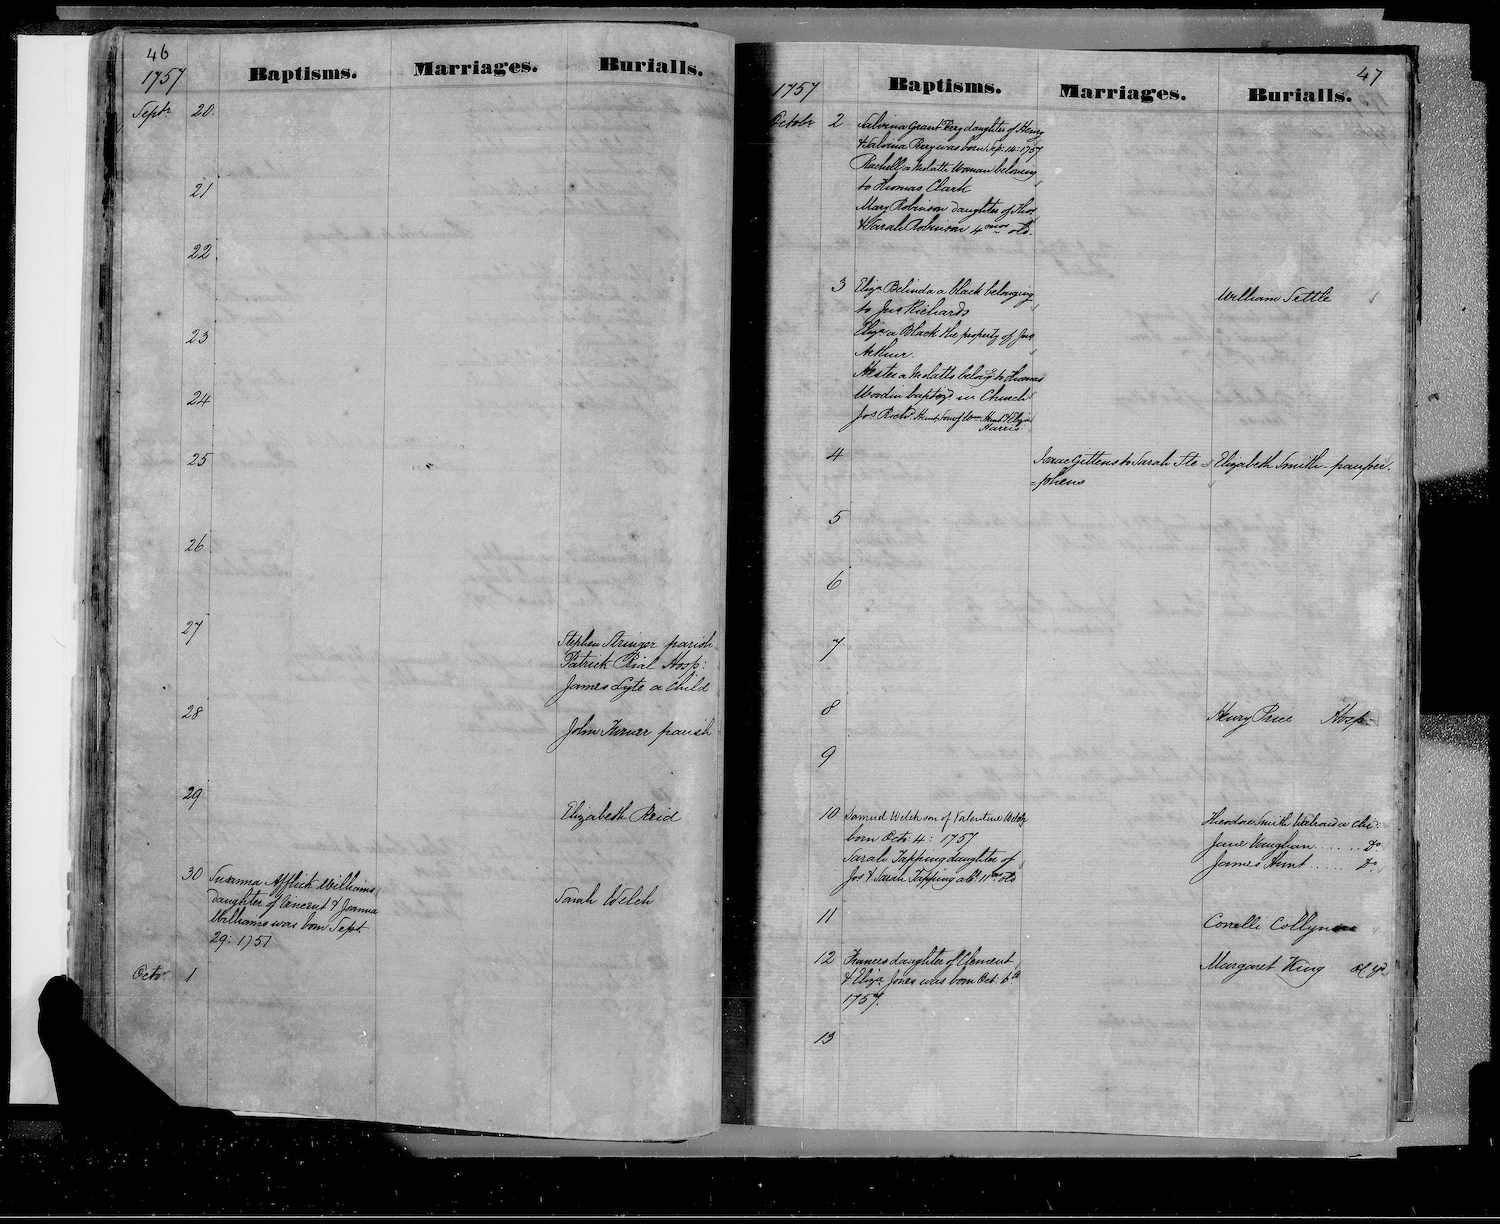 46
1757
Baptisms. Marriages. Burialls.
Septr 20
21
22
23
24
25
26
27
Stephen Stringer parish
Patrick Rial Hosp:
James Lyte a Child
28
John Turner parish
29
Elizabeth Reid
30 Susanna Afflick Williams
daughter of Vincent & Joanna
Williams was born Sept
29: 1757
Sarah Welch
Octr 1
47
1757
Baptisms. Marriages. Burialls.
Octobr 2 Salvina Grant Berry daughter of Henry
& Salvina Berry was born Sep: 14: 1757
Rachell a Molatto Woman belonng
to Thomas Clark
Mary Robinson daughter of Thos
& Sarah Robinson 4 mos old.
3 Eliza Belinda a black belonging
to Jno Richards
Eliza a Black the property of Jno
Arthur.
Hester a Molatto belong to Thomas
Woodin baptizd in Church
Jos Richd Hunt Son of Wm Hunt & Eliza
Harris
William Settle
4
Isaac Gittens to Sarah Ste=
=phens
Elizabeth Smith - pauper.
5
6
7
8
Henry Price Hosp
9
10 Samuel Welch son of Valentine Welch
born Octr 4: 1757
Sarah Tapping daughter of
Jos & Sarah Tapping abt 11 mos old
Theodore Smith a Chi:
Jane Vaughan ..... Do
James Hunt ... Do
11
Conelli Collyn
12 Frances daughter of Clement
& Eliza Jones was born Oct. 6th
1757.
Margaret King
13